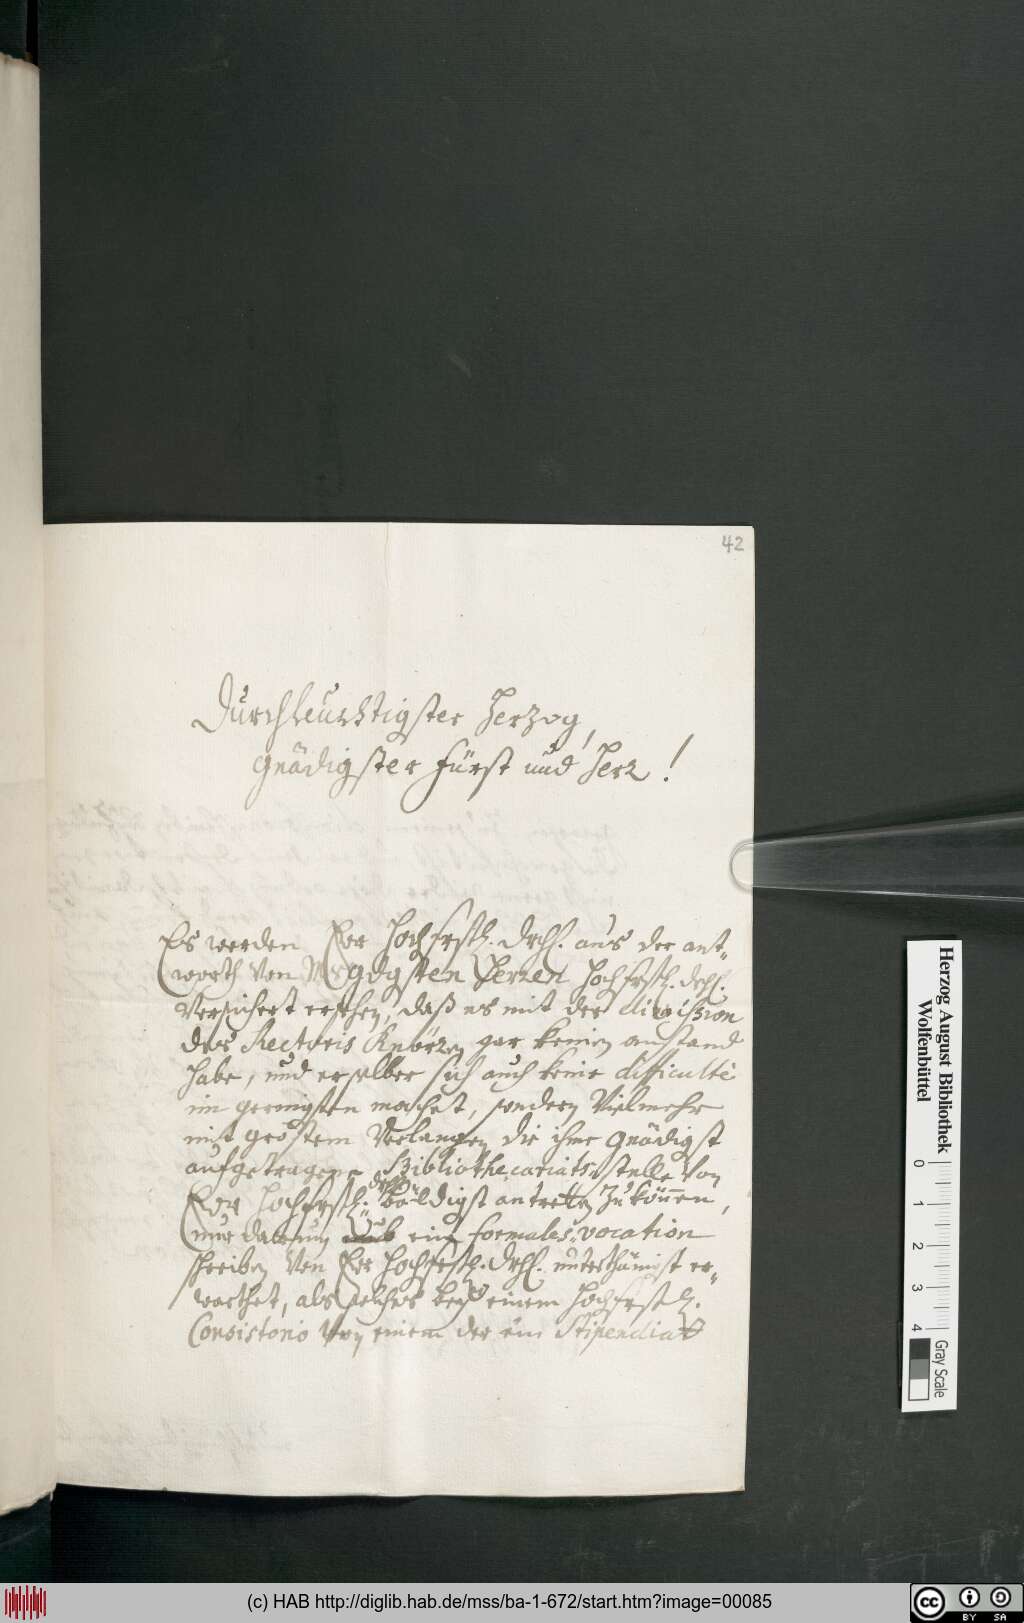 42
Durchleuchtigster Herzog,
gnädigster Fürst und Herr!
Es werden Ewr Hochfrstl. Drchl. aus der ant-
worth von Mrs gdgsten Herren Hochfrstl. drchl.
versichert ersehen, daß es mit der dimission
des Rectoris Knörzen gar keinen anstand
habe, und er selber sich auch keine difficultè
im geringsten machet, sondern Vielmehr
mit größtem Verlangen die ihme gnädigst
aufgetragene Bibliothecariats stelle von
Ewr Hochfrstl. drchl. bäldigst antretten zu können,
nur darum ein formales vocation
schreiben von Ewr Hochfrstl. Drchl. unterthänigst er-
warthet, als welches bey einem Hochfrstl.
Consistorio von einem der ein Stipendiat
Herzog August Bibliothek
Wolfenbüttel
0 1 2 3 4
Gray Scale
(c) HAB http://diglib.hab.de/mss/ba-1-672/start.htm?image=00085
cc BY SA